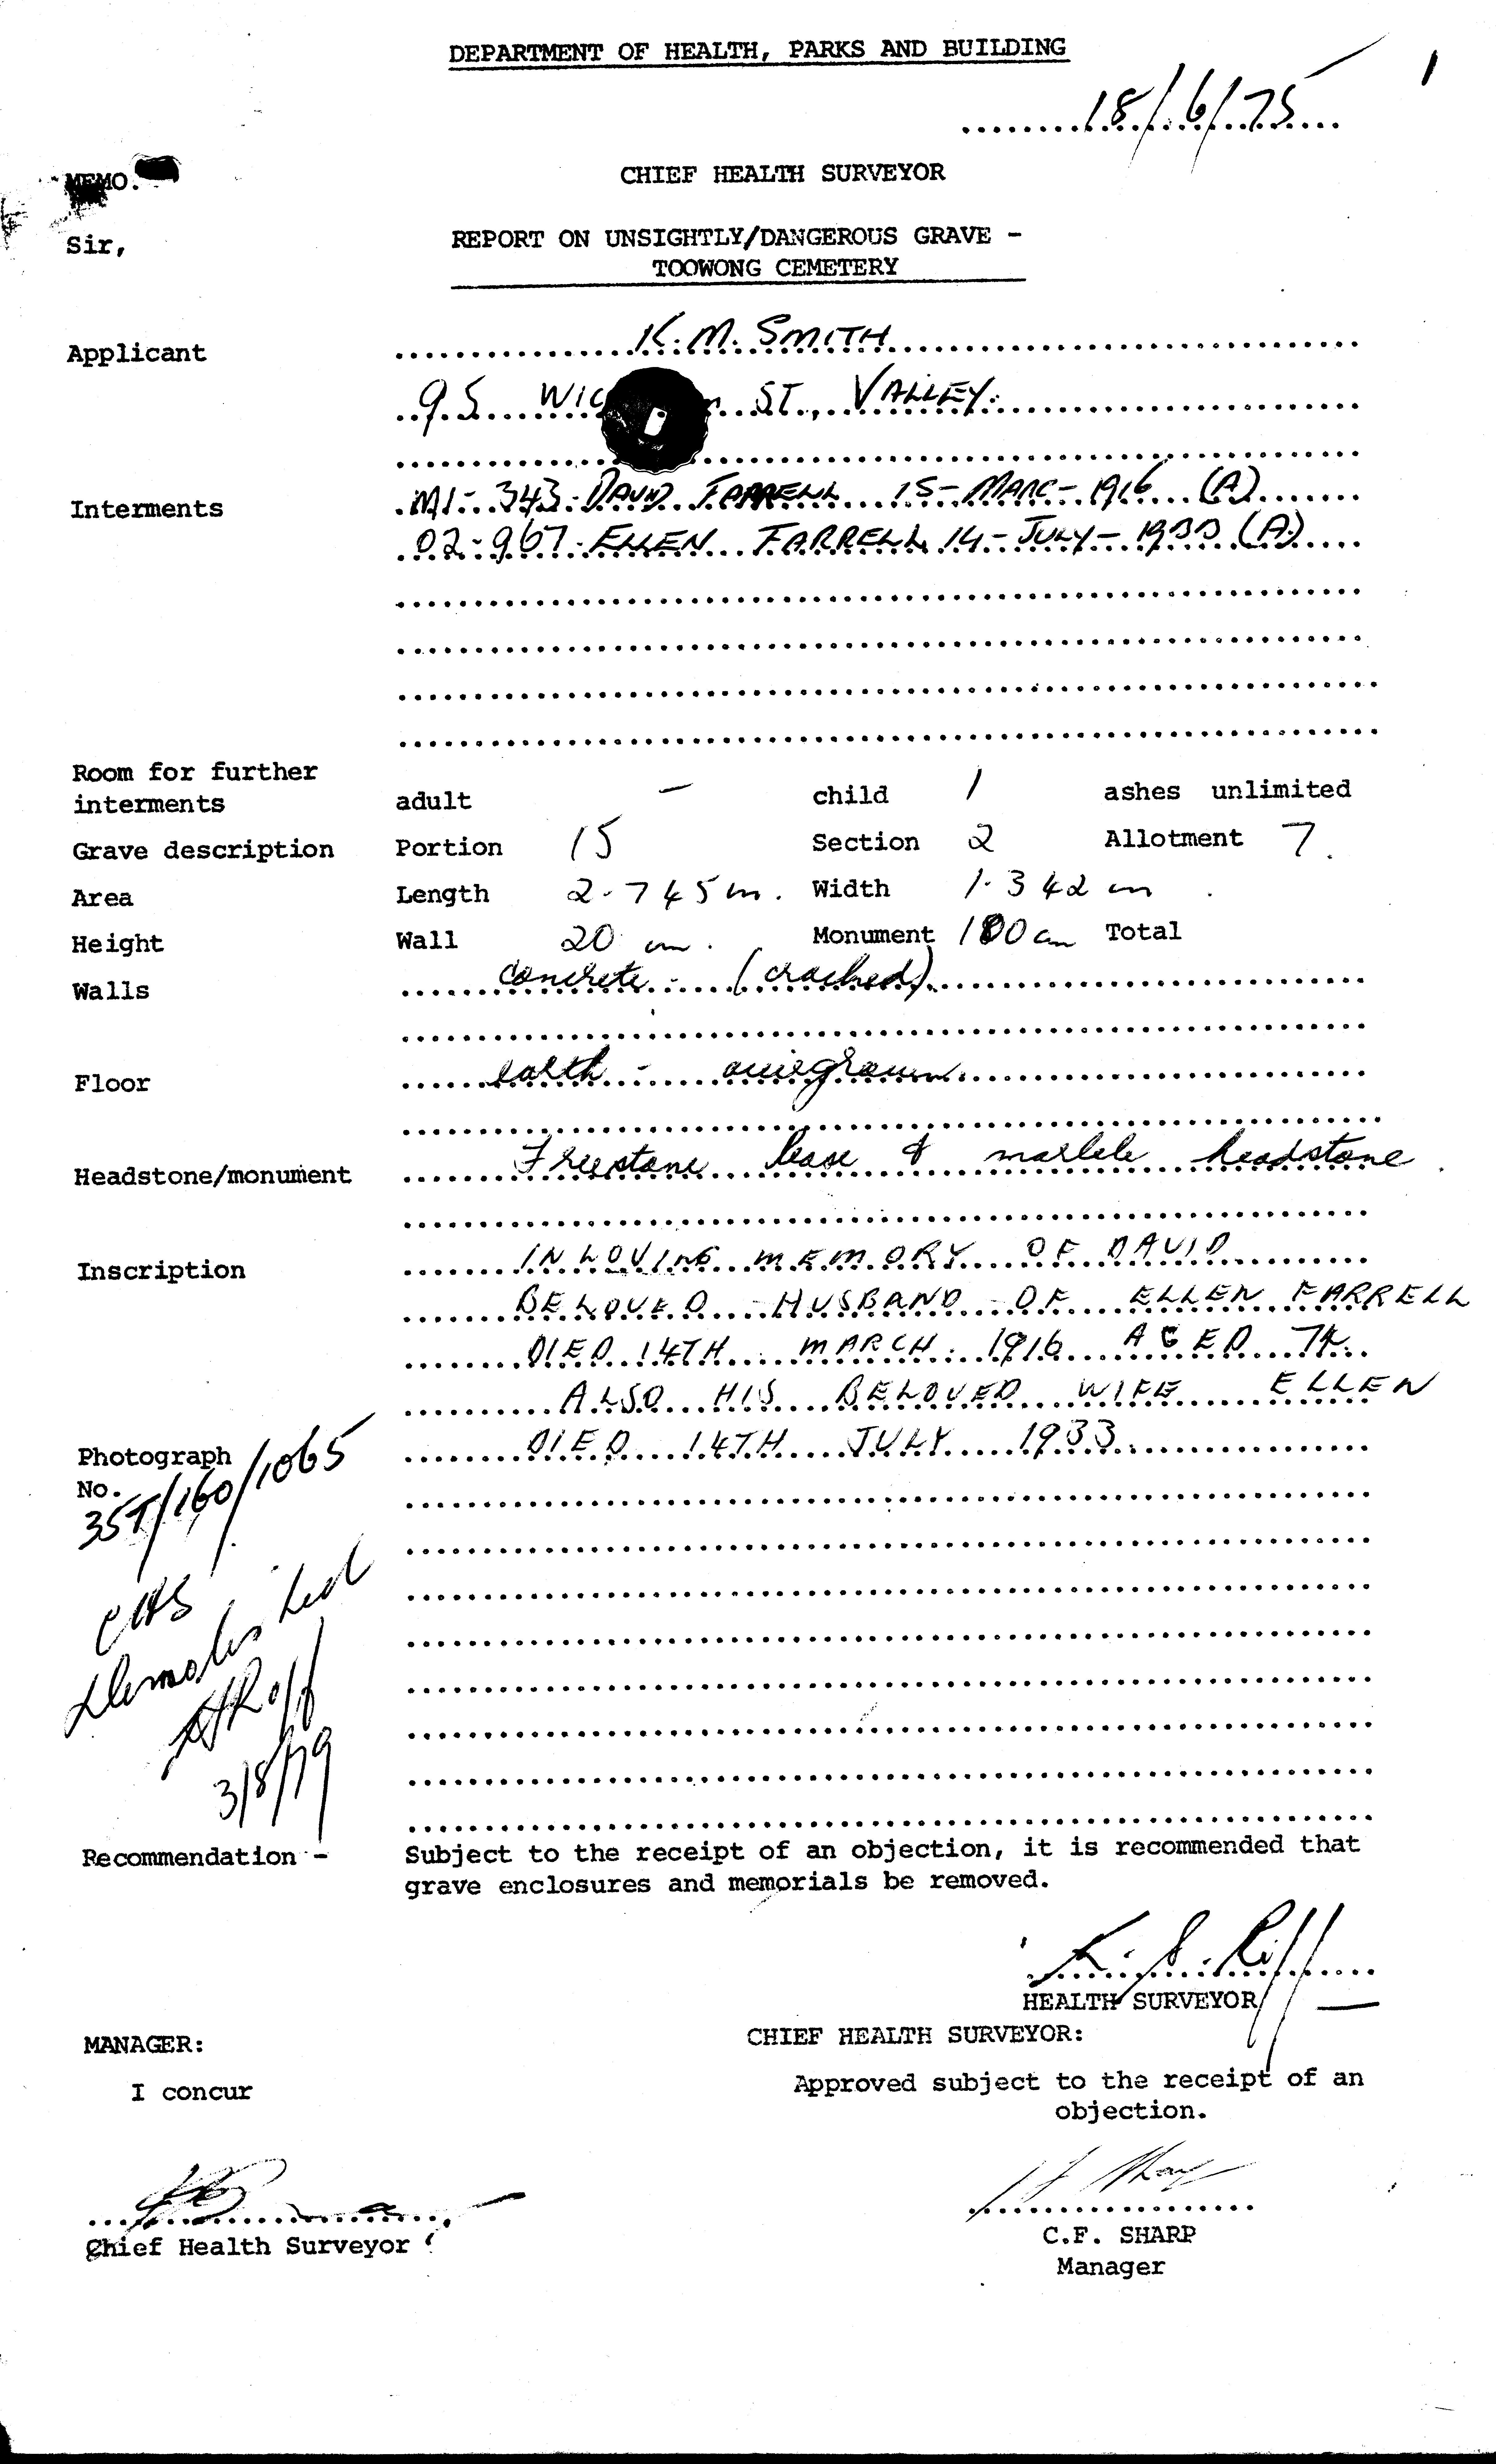 DEPARTMENT OF HEALTH, PARKS AND BUILDING
18/6/75
1
MEMO.
CHIEF HEALTH SURVEYOR
Sir,
REPORT ON UNSIGHTLY/DANGEROUS GRAVE -
TOOWONG CEMETERY
Applicant K. M. SMITH
95 ST., VALLEY.
Interments M1- 343- DAVID FARRELL 15-MARC-1916 (A)
02-967- ELLEN FARRELL 14-JULY-1933 (A)
Room for further
interments adult - child 1 ashes unlimited
Grave description Portion 15 Section 2 Allotment 7.
Area Length 2.745 m. Width 1.342 m
Height Wall 20 cm. Monument 100 cm Total
Walls concrete - (cracked)
Floor earth - overgrown
Headstone/monument Freestone base & marble headstone
Inscription IN LOVING MEMORY OF DAVID
BELOVED HUSBAND OF ELLEN FARRELL
DIED 14TH MARCH 1916 AGED 74
ALSO HIS BELOVED WIFE ELLEN
Photograph DIED 14TH JULY 1933
No.
357/160/1065
CHS
Demolished
3/8/79
Recommendation - Subject to the receipt of an objection, it is recommended that
grave enclosures and memorials be removed.
HEALTH SURVEYOR
MANAGER: CHIEF HEALTH SURVEYOR:
I concur Approved subject to the receipt of an
objection.
Chief Health Surveyor C.F. SHARP
Manager